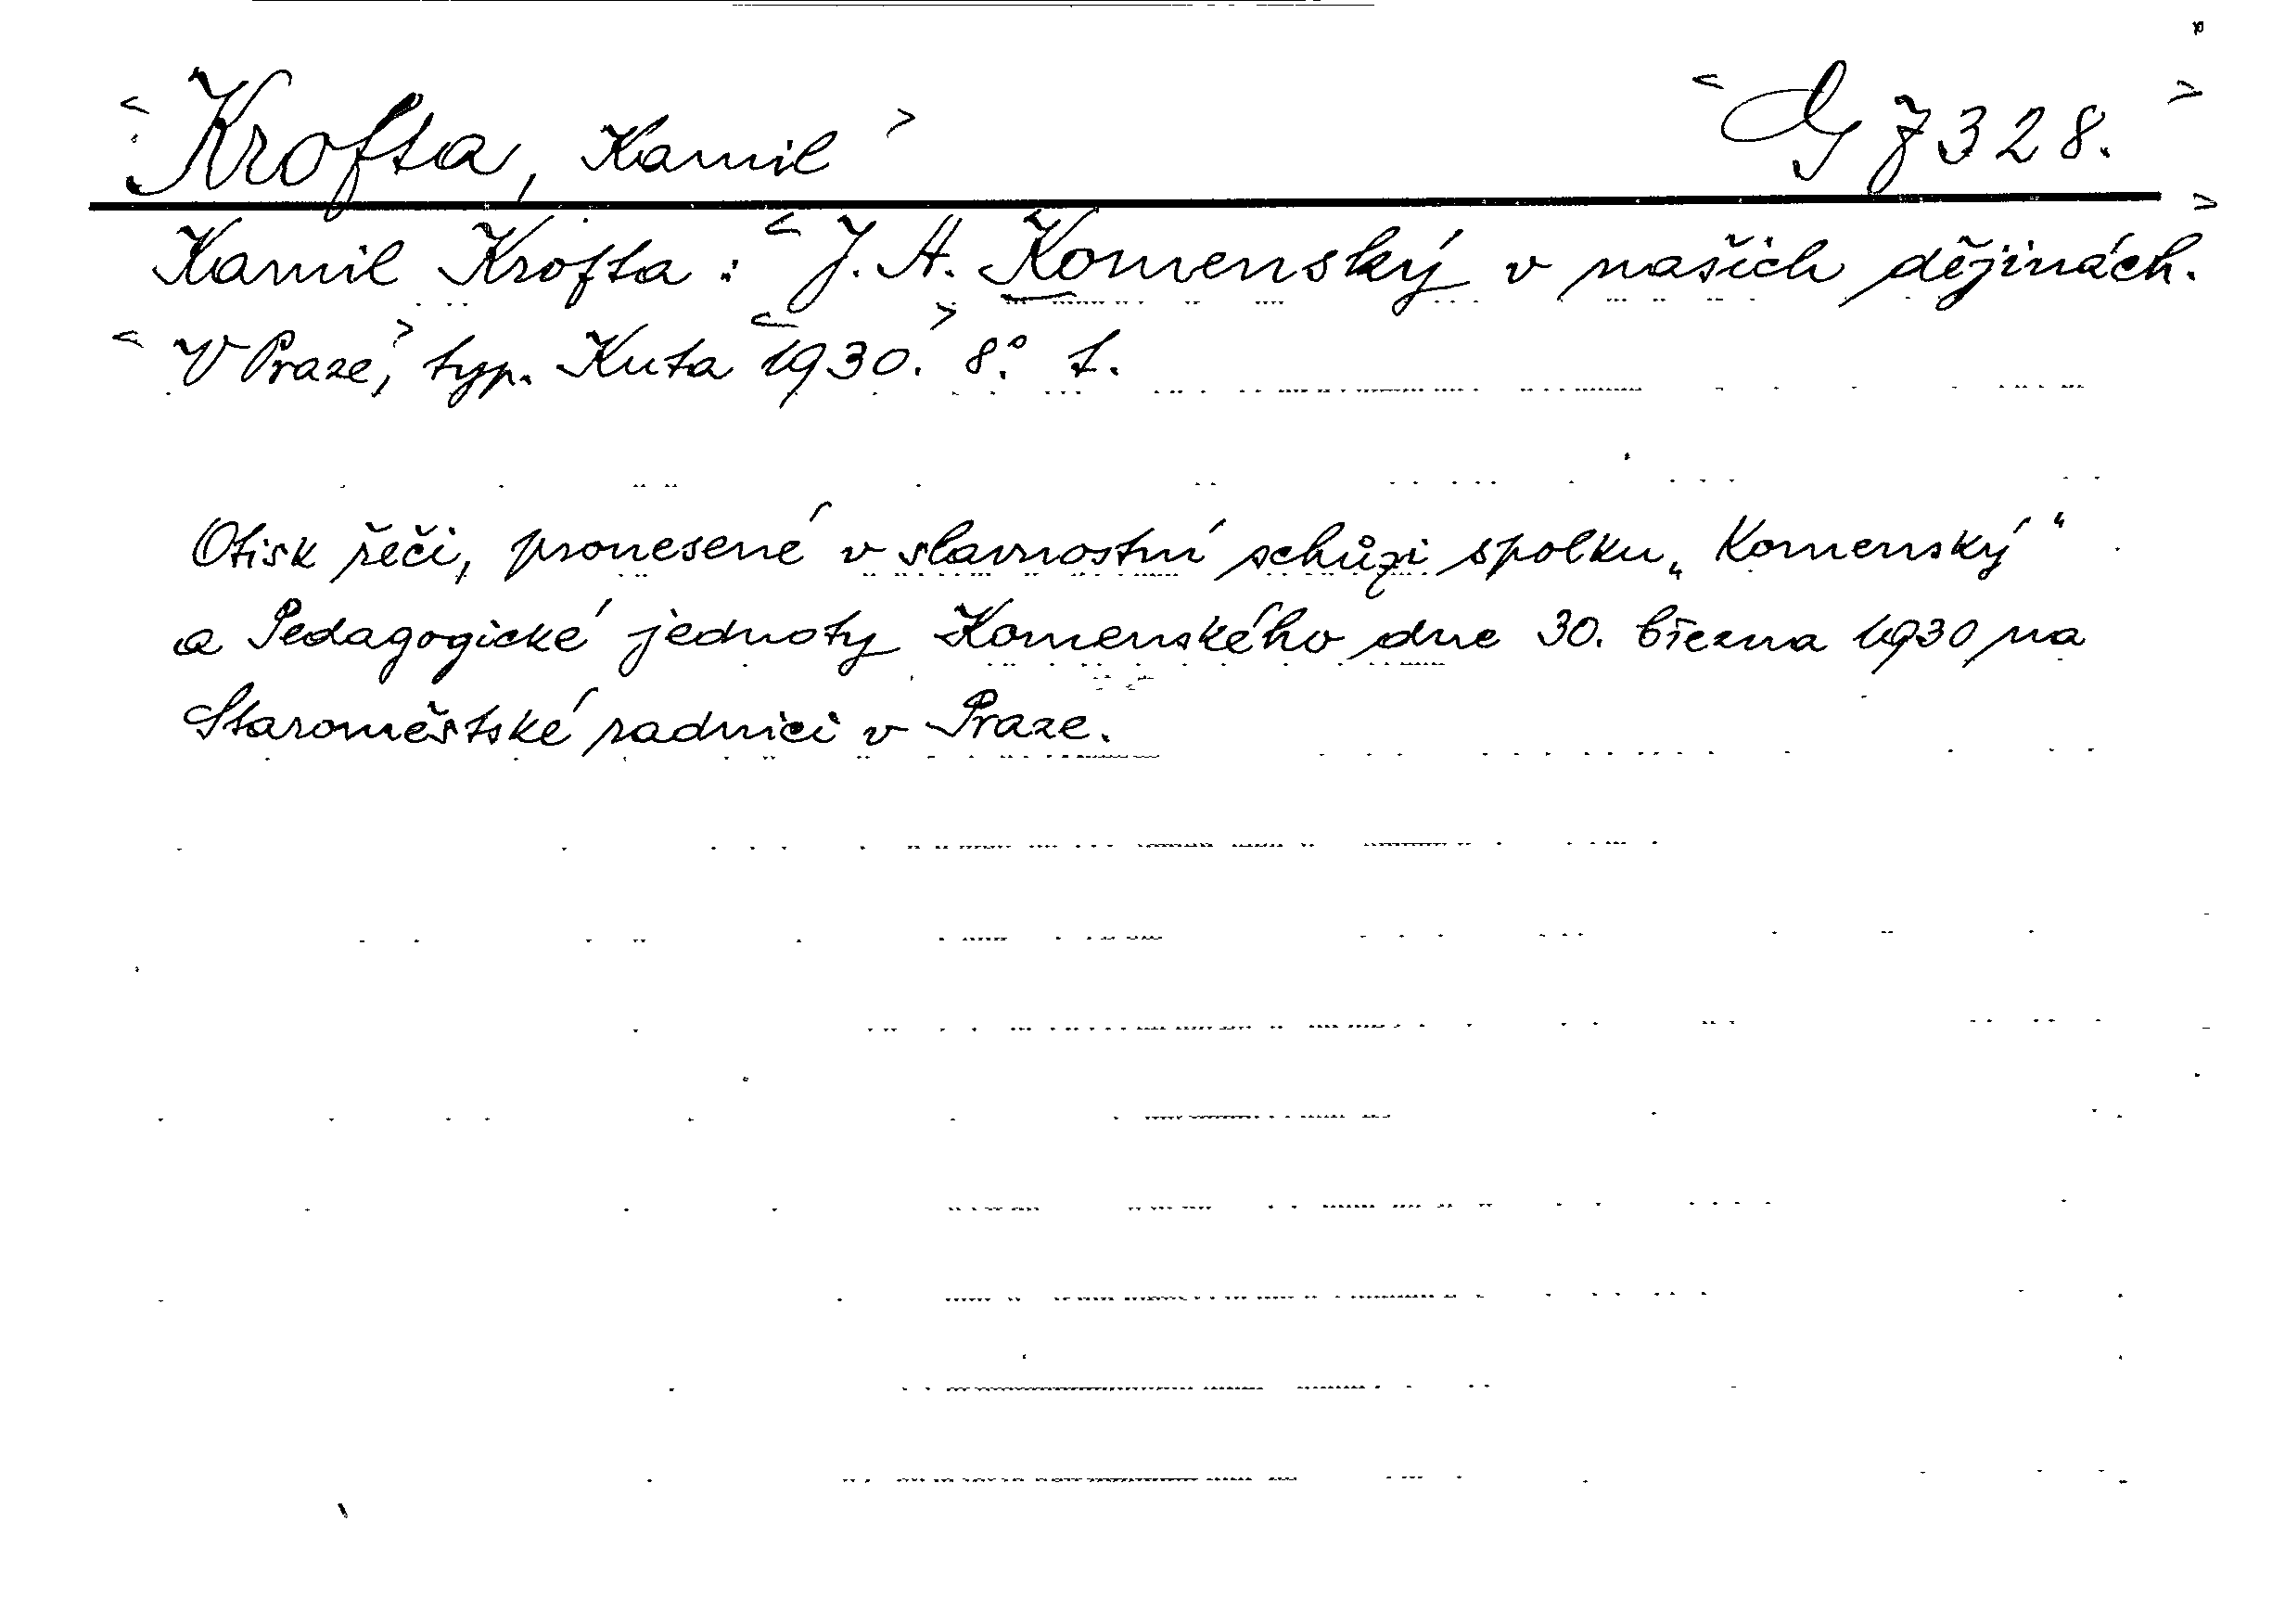 <Krofta, Kamil> <G 7328.>
Kamil Krofta: <J. A. Komenský v našich dějinách.>
<V Praze,> typ. Kuta <1930.> 8.° 1.
Otisk řeči, pronesené v slavnostní schůzi spolku „Komenský“
a Pedagogické jednoty Komenského dne 30. března 1930 na
Staroměstské radnici v Praze.